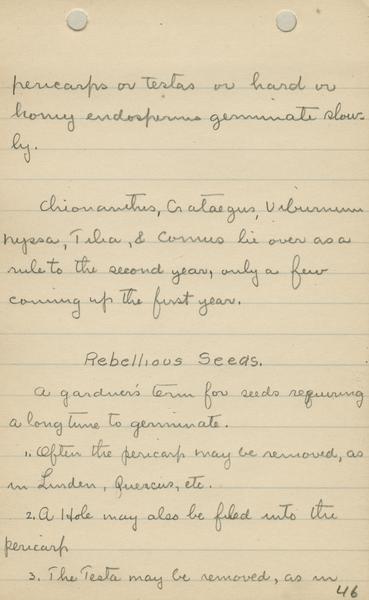 pericarps or testas or hard or
horny endosperms germinate slow-
ly.
Chionanthus, Crataegus, Viburnum
Nyssa, Tilia, & Cornus lie over as a
rule to the second year, only a few
coming up the first year.
Rebellious Seeds.
A gardner's term for seeds requiring
a long time to germinate.
1. Often the pericarp may be removed, as
in Linden, Quercus, etc.
2. A Hole may also be filed into the
pericarp
3. The Testa may be removed, as in
46